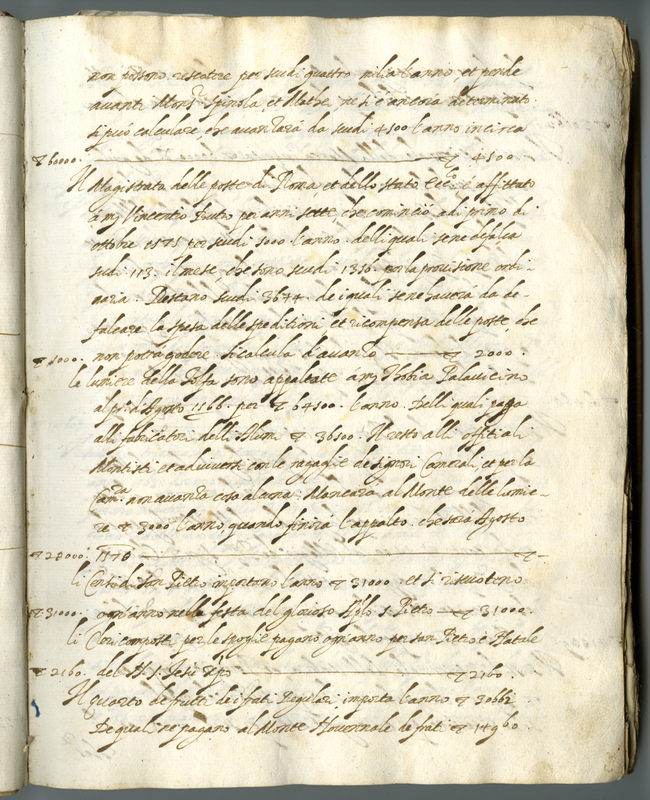 non possono riscotere per scudi quattro milia l'anno, et pende
avanti Mons.r Spinola, et Mathe, ne si è ancora determinato
si può calculare che avanzarà da scudi 4500 l'anno incirca
60000. 4500.
Il Magistrato delle poste di Roma, et dello stato è affittato
a m. Vincentio per anni sette, che cominciò adi primo di
ottobre 1575 per scudi 5000 l'anno. delli quali sene defalca
scudi 113. il mese, che sono scudi 1356. per la provisione ordi-
naria. Restano scudi 3644. de i quali sene haverà da de-
falcare la spesa delle speditioni, et ricompensa delle poste, che
5000. non potrà godere. Si calcula d'avanzo 2000.
le lumiere della Tolfa sono appaltate a m. Tobia Palavicino
al p.o d'Agosto 1566. per 64500. l'anno. Delli quali paga
alli fabricatori delli Alumi 36500. Il resto alli offitiali
Montisti et a diversi con le de signori Camerali, et per la
non avanza cosa alcuna. Mancarà al Monte delle lumie-
re 3000 l'anno, quando finirà l'appalto. che sarà Agosto
28000. 1578
li Censi di San Pietro montano l'anno 31000 et si riscuoteno
31000. ogn'anno nella festa del glorioso s. Pietro 31000.
li composti per le spoglie pagano ogn'anno per san Pietro e Natale
2160. del N. S. Jesu Xpo 2160.
Il quarto de frutti de i frati Regulari importa l'anno 30662
De quali ne pagano al Monte Novennale de frati 14960.